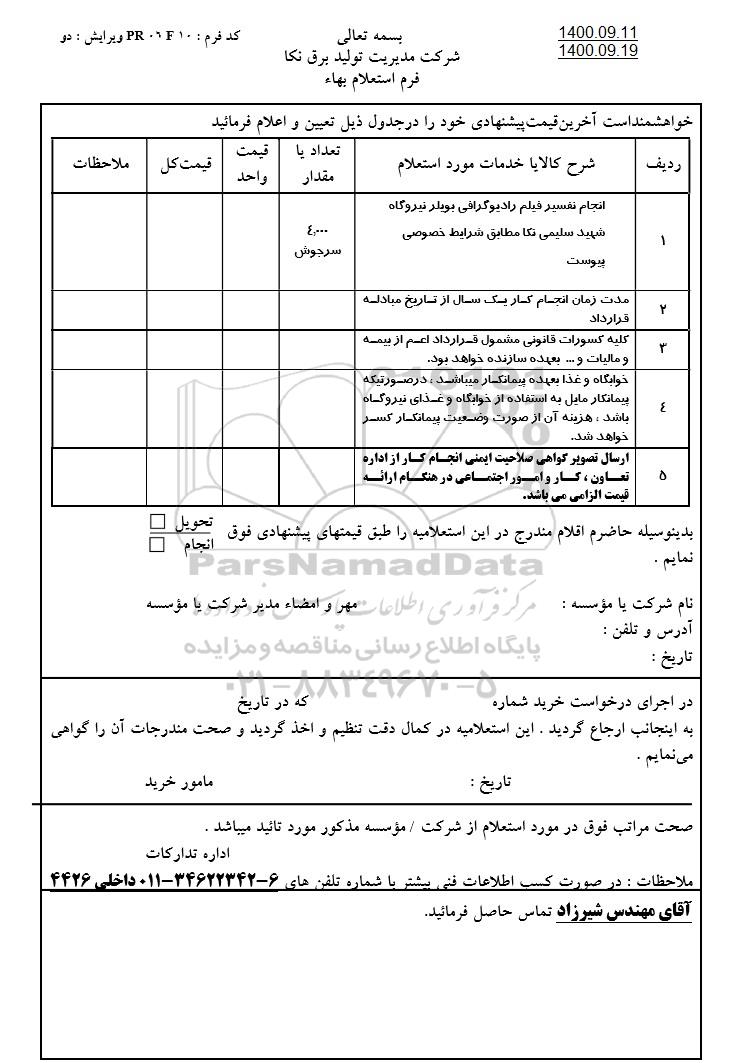 1400.09.11
1400.09.19
بسمه تعالی
کد فرم : PR ٠٦ F ١٠ ویرایش : دو
شرکت مدیریت تولید برق نکا
فرم استعلام بهاء
خواهشمنداست آخرین‌قیمت‌پیشنهادی خود را درجدول ذیل تعیین و اعلام فرمائید
ردیف
شرح کالایا خدمات مورد استعلام
تعداد یا
مقدار
قیمت
واحد
قیمت‌کل
ملاحظات
١
انجام تفسیر فیلم رادیوگرافی بویلر نیروگاه
شهید سلیمی نکا مطابق شرایط خصوصی
پیوست
٤,٠٠٠
سرجوش
٢
مدت زمان انجام کار یک سال از تاریخ مبادله
قرارداد
٣
کلیه کسورات قانونی مشمول قرارداد اعم از بیمه
و مالیات و ... بعهده سازنده خواهد بود.
٤
خوابگاه و غذا بعهده پیمانکار میباشد ، درصورتیکه
پیمانکار مایل به استفاده از خوابگاه و غذای نیروگاه
باشد ، هزینه آن از صورت وضعیت پیمانکار کسر
خواهد شد.
٥
ارسال تصویر گواهی صلاحیت ایمنی انجام کار از اداره
تعاون ، کار و امور اجتماعی در هنگام ارائه
قیمت الزامی می باشد.
بدینوسیله حاضرم اقلام مندرج در این استعلامیه را طبق قیمتهای پیشنهادی فوق
تحویل
انجام
نمایم .
ParsNamadData
نام شرکت یا مؤسسه :
مهر و امضاء مدیر شرکت یا مؤسسه
آدرس و تلفن :
پایگاه اطلاع رسانی مناقصه و مزایده
تاریخ :
۰۲۱-۸۸۳۴۹۶۷۰-۵
در اجرای درخواست خرید شماره
که در تاریخ
به اینجانب ارجاع گردید . این استعلامیه در کمال دقت تنظیم و اخذ گردید و صحت مندرجات آن را گواهی
می‌نمایم .
تاریخ :
مامور خرید
صحت مراتب فوق در مورد استعلام از شرکت / مؤسسه مذکور مورد تائید میباشد .
اداره تدارکات
ملاحظات : در صورت کسب اطلاعات فنی بیشتر با شماره تلفن های ۶-۳۴۶۲۲۳۴۲-۰۱۱ داخلی ۴۴۲۶
آقای مهندس شیرزاد تماس حاصل فرمائید.